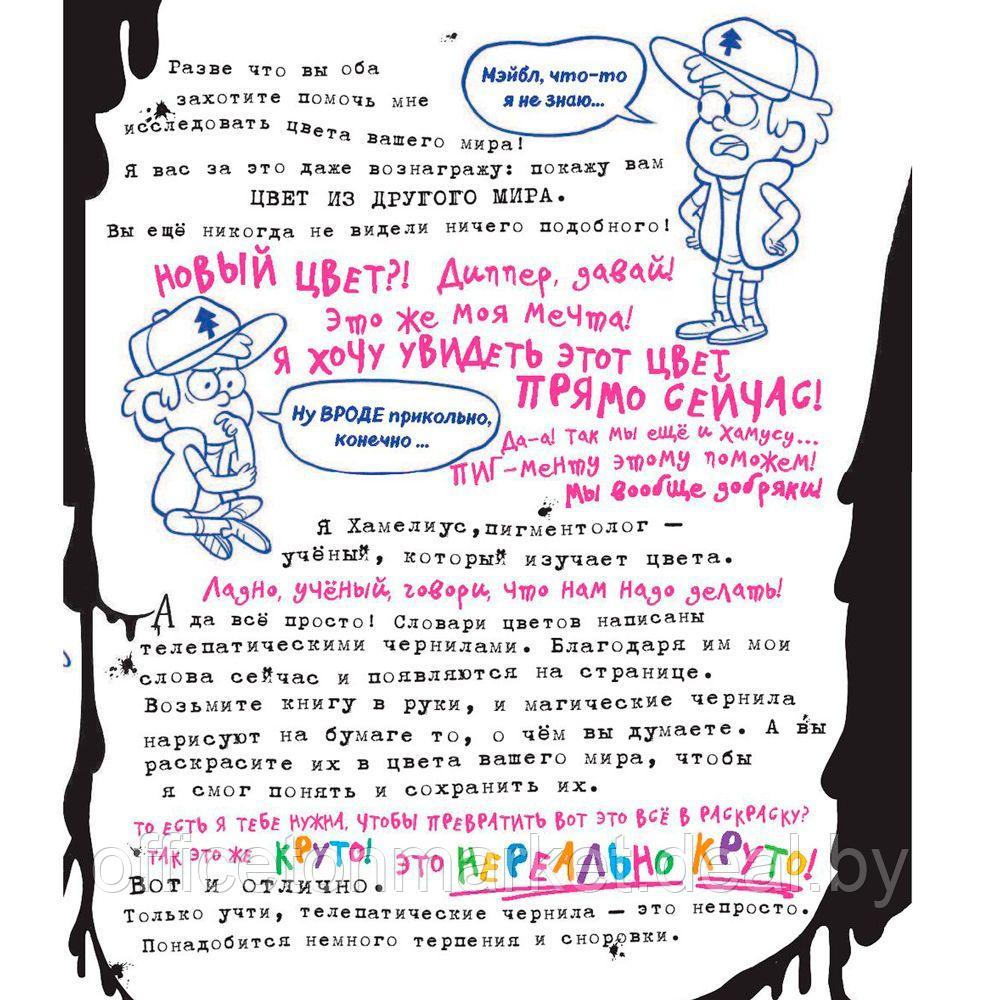 Разве что вы оба
захотите помочь мне
исследовать цвета вашего мира!
Мэйбл, что-то
я не знаю...
Я вас за это даже вознагражу: покажу вам
ЦВЕТ ИЗ ДРУГОГО МИРА.
Вы ещё никогда не видели ничего подобного!
НОВЫЙ ЦВЕТ?! Диппер, давай!
Это же моя мечта!
Я ХОЧУ УВИДЕТЬ ЭТОТ ЦВЕТ
ПРЯМО СЕЙЧАС!
Ну ВРОДЕ прикольно,
конечно ...
Да-а! Так мы ещё и Хамусу...
ПИГ-менту этому поможем!
Мы вообще добряки!
Я Хамелиус, пигментолог —
учёный, который изучает цвета.
Ладно, учёный, говори, что нам надо делать!
А да всё просто! Словари цветов написаны
телепатическими чернилами. Благодаря им мои
слова сейчас и появляются на странице.
Возьмите книгу в руки, и магические чернила
нарисуют на бумаге то, о чём вы думаете. А вы
раскрасите их в цвета вашего мира, чтобы
я смог понять и сохранить их.
ТО ЕСТЬ Я ТЕБЕ НУЖНА, ЧТОБЫ ПРЕВРАТИТЬ ВОТ ЭТО ВСЁ В РАСКРАСКУ?
ТАК ЭТО ЖЕ КРУТО! ЭТО НЕРЕАЛЬНО КРУТО!
officetonmarket.deal.by
Вот и отлично.
Только учти, телепатические чернила — это непросто.
Понадобится немного терпения и сноровки.